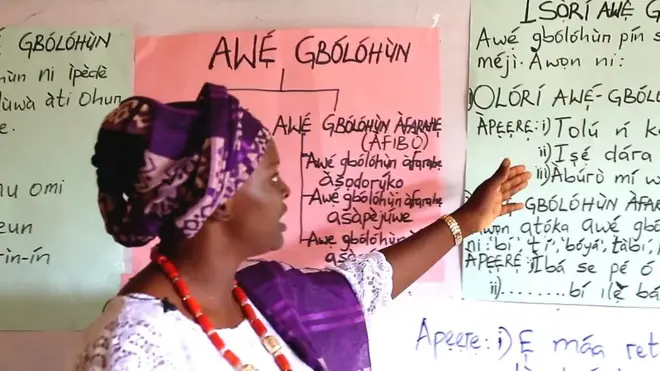 AWẸ́ GBÓLÓHÙN
GBÓLÓHÙN
hùn ni ìpèdè
lúwà àti Ohun
e.
nu omi
eun
rin-ín
AWẸ́ GBÓLÓHÙN
AWẸ́ GBÓLÓHÙN ÀFARAHẸ
(ÀFIBỌ̀)
Awẹ́ gbólóhùn àfarahẹ
àṣọdorúkọ
Awẹ́ gbólóhùn àfarahẹ
aṣàpèjúwe
Awẹ gbólóhùn
ISỌ̀RÍ AWẸ́
Awẹ́ gbólóhùn pín s
méjì. Àwọn ni:
OLÓRÍ AWẸ́-GBÓLÓ
ÀPẸẸRẸ: i) Tolú ń k
ii) Iṣẹ́ dára
iii) Àbúrò mi w
GBÓLÓHÙN ÀFARA
wọn atọ́ka awẹ́ gbó
ni: bí, tí, bóyá, tàbí,
ÀPẸẸRẸ: Ìbá se pé ó
ii)........ bí ilẹ̀ bá
Apẹẹrẹ: i) Ẹ̀ máa ret